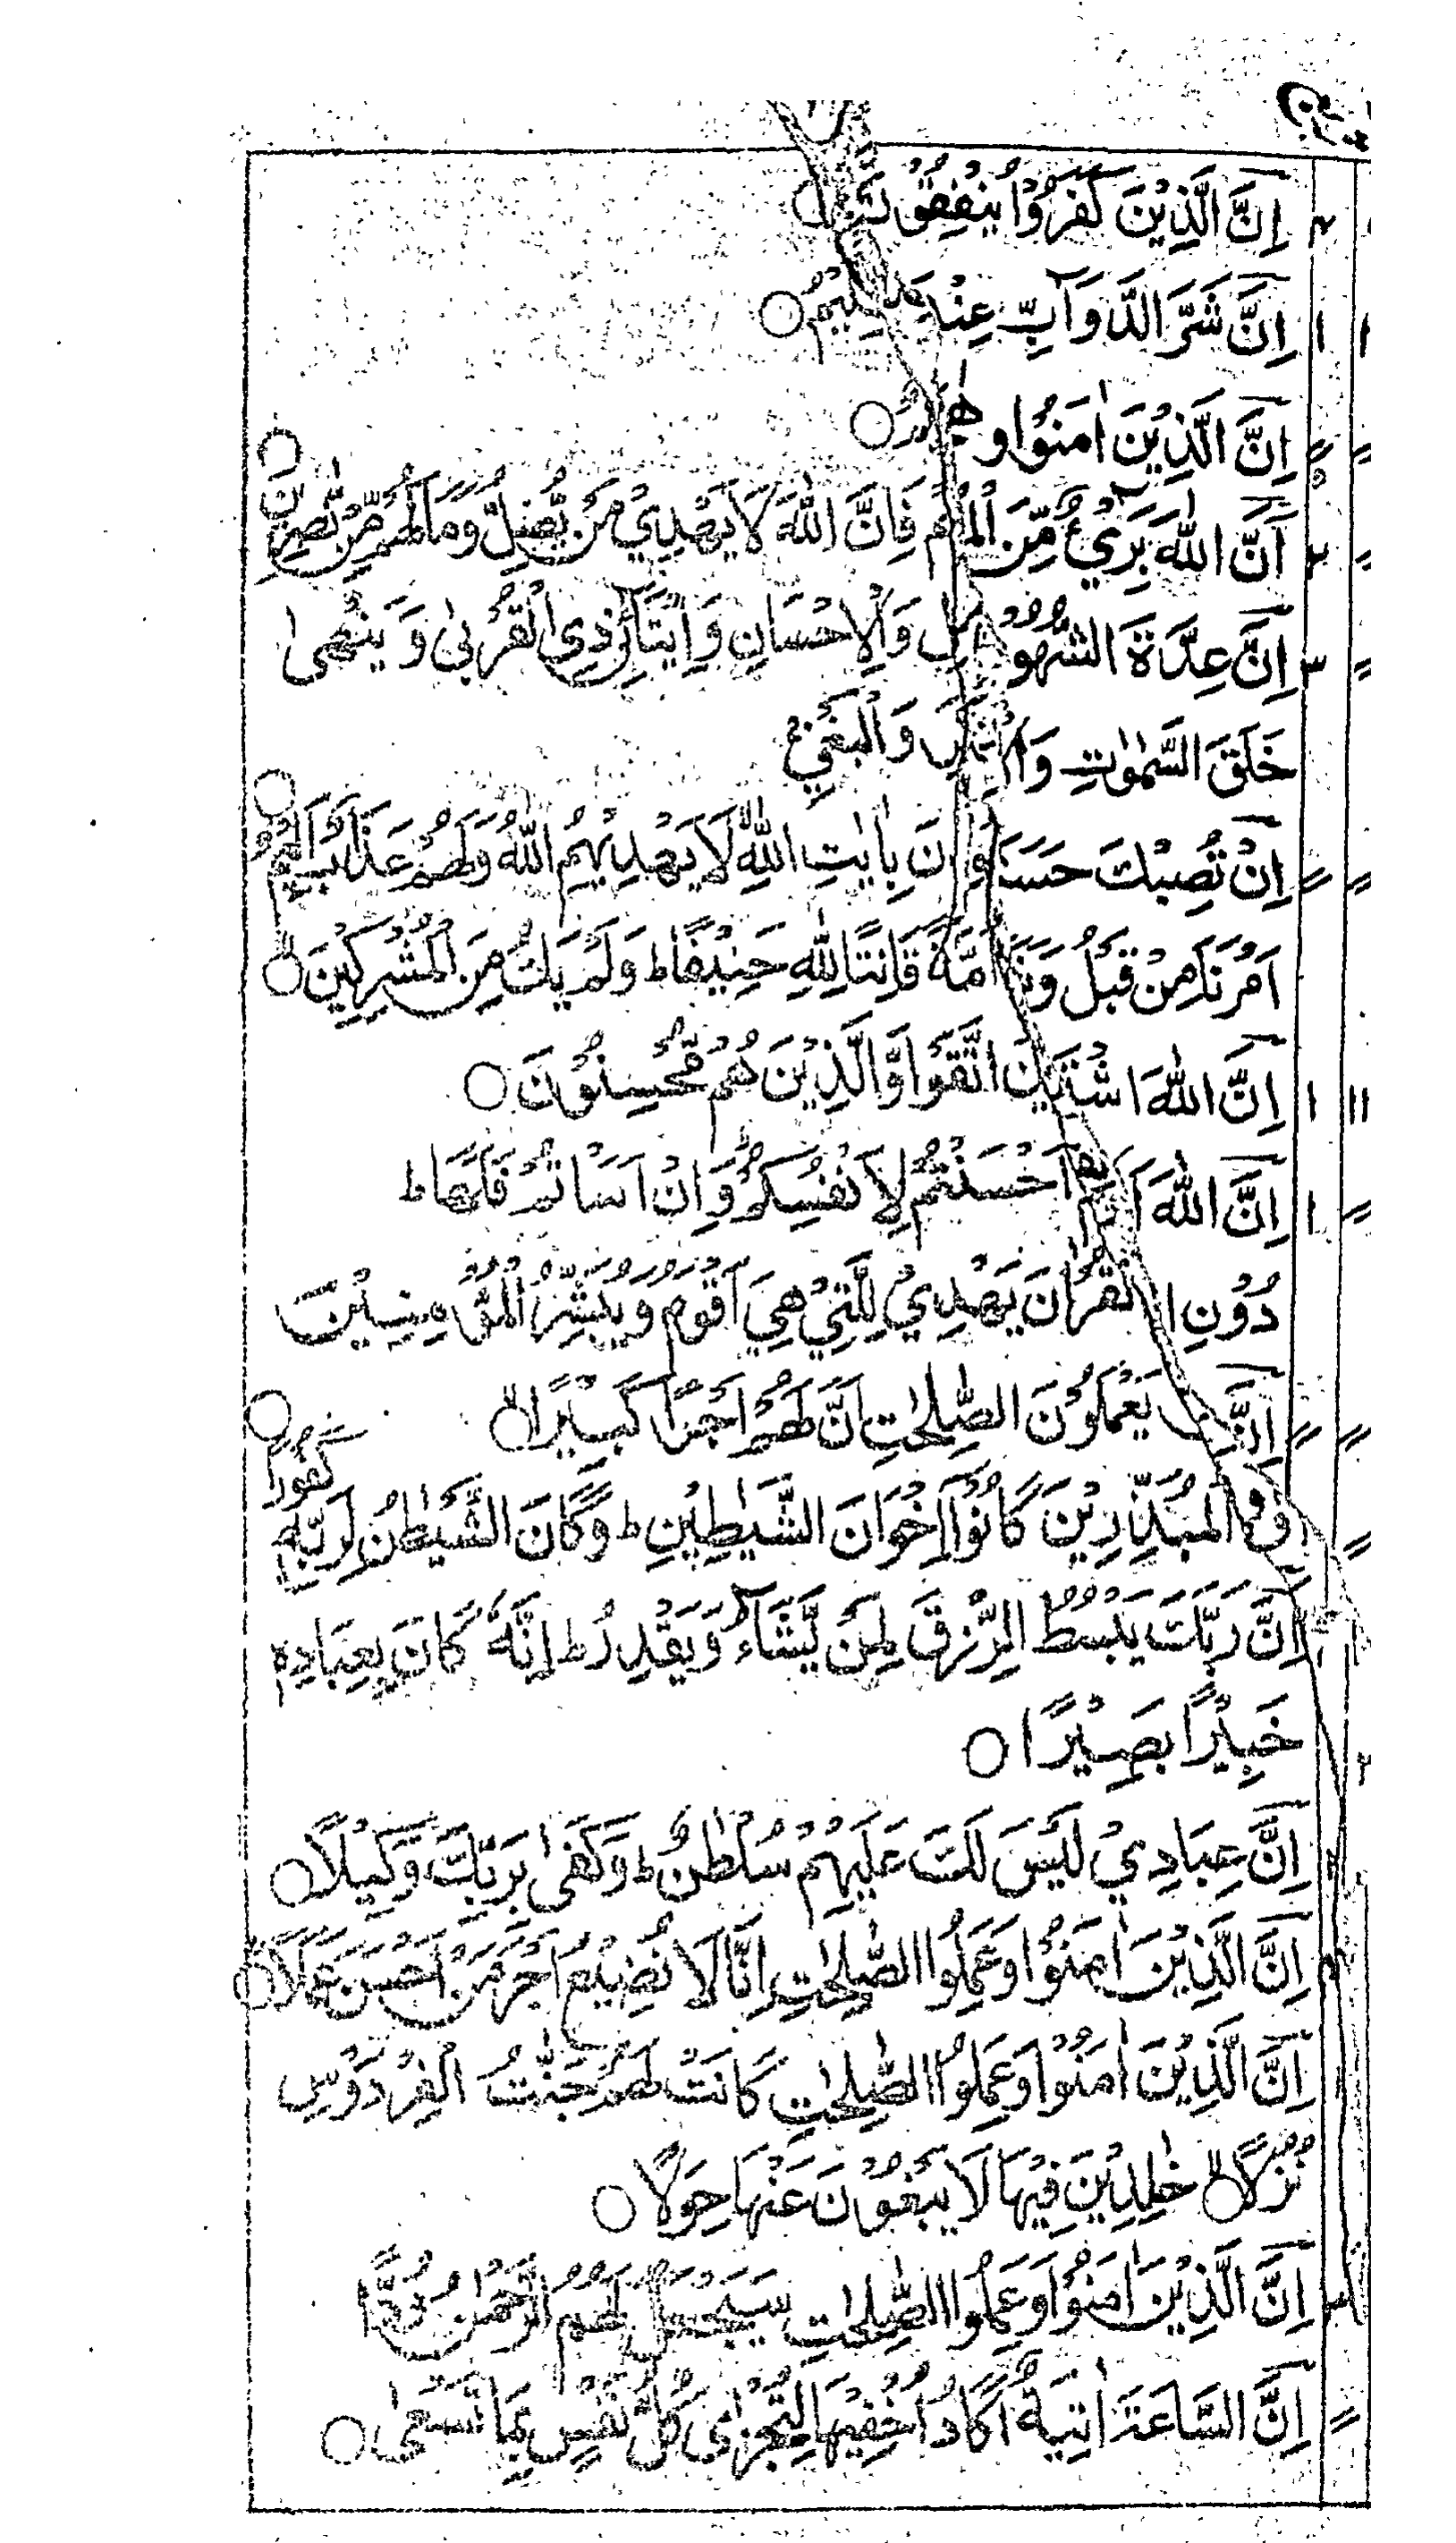 اِنَّ الَّذِيْنَ كَفَرُوْا يُنْفِقُ
اِنَّ شَرَّ الدَّوَآبِّ عِنْدَ
اِنَّ الَّذِيْنَ اٰمَنُوْا وَ
اَنَّ اللّٰهَ بَرِيْٓءٌ مِّنَ الْمُ فَاِنَّ اللّٰهَ لَا يَهْدِيْ مَنْ يُّضِلُّ وَمَا لَهُمْ مِّنْ نّٰصِرِيْنَ ○
اِنَّ عِدَّةَ الشُّهُوْ وَالْاِحْسَانِ وَاِيْتَآئِ ذِي الْقُرْبٰى وَيَنْهٰى
خَلَقَ السَّمٰوٰتِ وَ وَالْبَغْيِ ج
اِنْ تُصِبْكَ حَسَنَ نَ بِاٰيٰتِ اللّٰهِ لَا يَهْدِيْهِمُ اللّٰهُ وَلَهُمْ عَذَابٌ اَلِيْمٌ ○
اَمْرَنَا مِنْ قَبْلُ وَ اُمَّةً قَانِتًا لِّلّٰهِ حَنِيْفًا ط وَلَمْ يَكُ مِنَ الْمُشْرِكِيْنَ ○
اِنَّ اللّٰهَ اشْتَ يْنَ اتَّقَوْا وَّالَّذِيْنَ هُمْ مُّحْسِنُوْنَ ○
اِنَّ اللّٰهَ اَحْسَنْتُمْ لِاَنْفُسِكُمْ وَاِنْ اَسَاْتُمْ فَلَهَا ط
دُوْنِ ا لْقُرْاٰنَ يَهْدِيْ لِلَّتِيْ هِيَ اَقْوَمُ وَيُبَشِّرُ الْمُؤْمِنِيْنَ
يَعْمَلُوْنَ الصّٰلِحٰتِ اَنَّ لَهُمْ اَجْرًا كَبِيْرًا ○
الْمُبَذِّرِيْنَ كَانُوْٓا اِخْوَانَ الشَّيٰطِيْنِ ط وَكَانَ الشَّيْطٰنُ لِرَبِّهٖ كَفُوْرًا ○
اِنَّ رَبَّكَ يَبْسُطُ الرِّزْقَ لِمَنْ يَّشَآءُ وَيَقْدِرُ ط اِنَّهٗ كَانَ بِعِبَادِهٖ
خَبِيْرًا بَصِيْرًا ○
اِنَّ عِبَادِيْ لَيْسَ لَكَ عَلَيْهِمْ سُلْطٰنٌ ط وَكَفٰى بِرَبِّكَ وَكِيْلًا ○
اِنَّ الَّذِيْنَ اٰمَنُوْا وَعَمِلُوا الصّٰلِحٰتِ اِنَّا لَا نُضِيْعُ اَجْرَ مَنْ اَحْسَنَ عَمَلًا ○
اِنَّ الَّذِيْنَ اٰمَنُوْا وَعَمِلُوا الصّٰلِحٰتِ كَانَتْ لَهُمْ جَنّٰتُ الْفِرْدَوْسِ
نُزُلًا ○ خٰلِدِيْنَ فِيْهَا لَا يَبْغُوْنَ عَنْهَا حِوَلًا ○
اِنَّ الَّذِيْنَ اٰمَنُوْا وَعَمِلُوا الصّٰلِحٰتِ سَيَجْعَلُ لَهُمُ الرَّحْمٰنُ وُدًّا
اِنَّ السَّاعَةَ اٰتِيَةٌ اَكَادُ اُخْفِيْهَا لِتُجْزٰى كُلُّ نَفْسٍۭ بِمَا تَسْعٰى ○